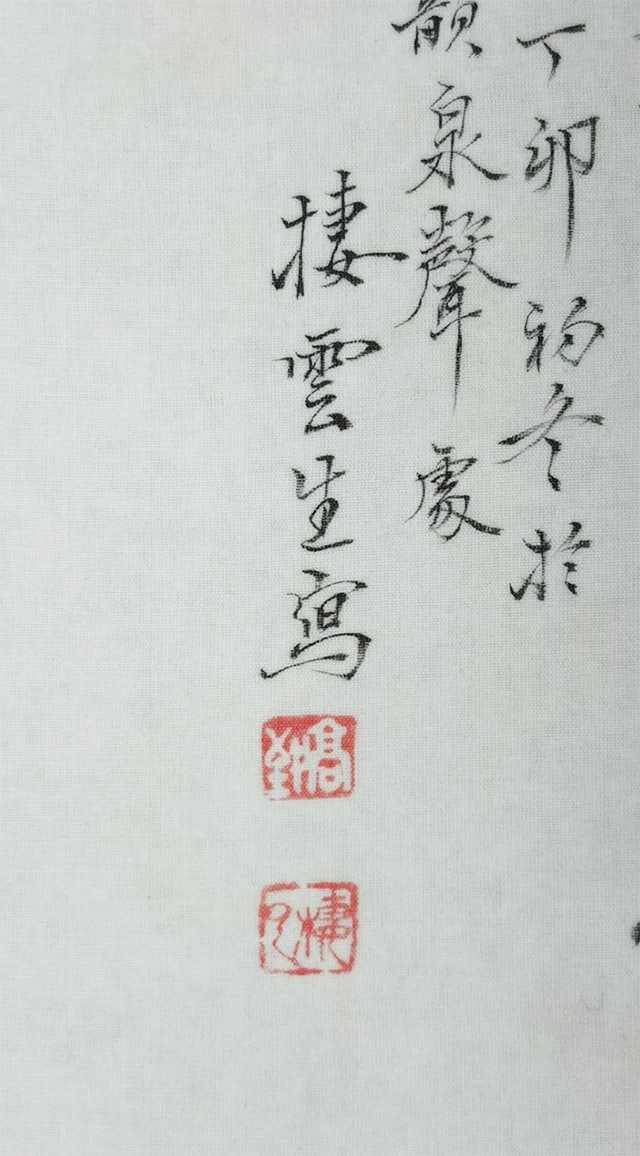 丁卯初冬於
韻泉聲處
棲雲生寫